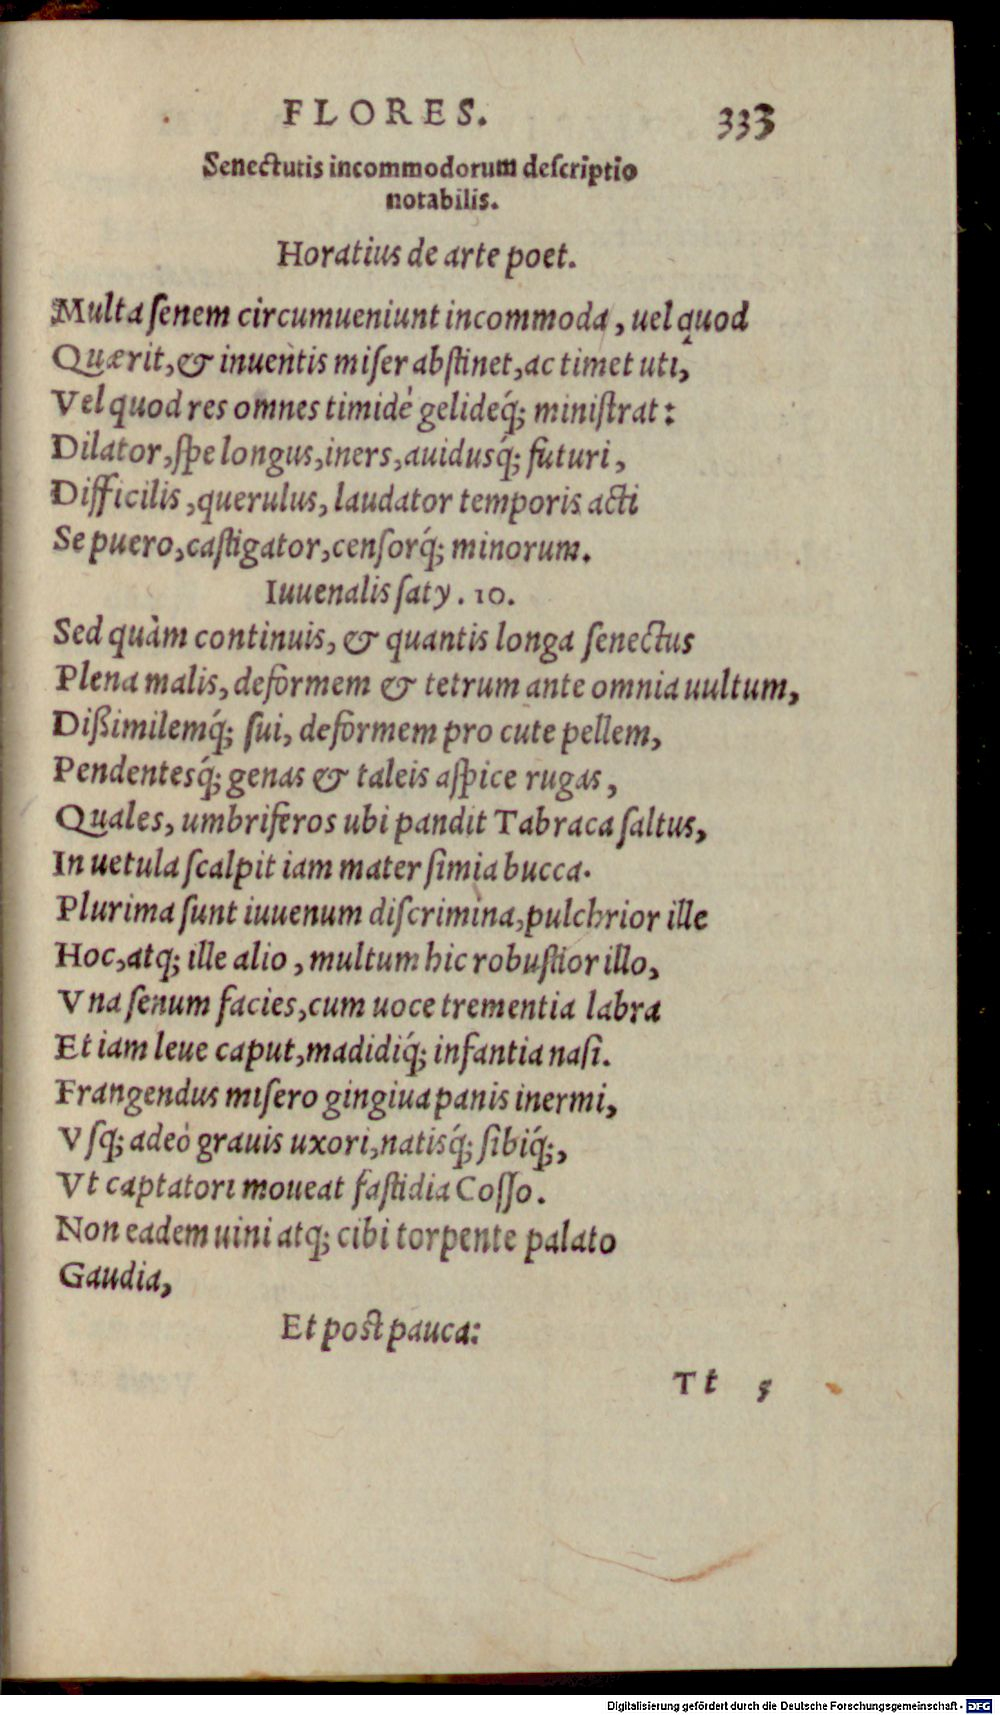 FLORES. 333
Senectutis incommodorum deſcriptio
notabilis.
Horatius de arte poet.
Multa ſenem circumueniunt incommoda, uel quod
Quærit, & inuentis miſer abſtinet, ac timet uti,
Vel quod res omnes timidè gelideq́; miniſtrat:
Dilator, ſpe longus, iners, auidusq́; futuri,
Difficilis, querulus, laudator temporis acti
Se puero, caſtigator, cenſorq́; minorum.
Iuuenalis ſaty. 10.
Sed quàm continuis, & quantis longa ſenectus
Plena malis, deformem & tetrum ante omnia uultum,
Dißimilemq́; ſui, deformem pro cute pellem,
Pendentesq́; genas & taleis aſpice rugas,
Quales, umbriferos ubi pandit Tabraca ſaltus,
In uetula ſcalpit iam mater ſimia bucca.
Plurima ſunt iuuenum diſcrimina, pulchrior ille
Hoc, atq; ille alio, multum hic robuſtior illo,
Vna ſenum facies, cum uoce trementia labra
Et iam leue caput, madidiq́; infantia naſi.
Frangendus miſero gingiua panis inermi,
Vſq; adeò grauis uxori, natisq́; ſibiq́;,
Vt captatori moueat faſtidia Coſſo.
Non eadem uini atq; cibi torpente palato
Gaudia,
Et poſt pauca:
Tt 5
Digitalisierung gefördert durch die Deutsche Forschungsgemeinschaft - DFG